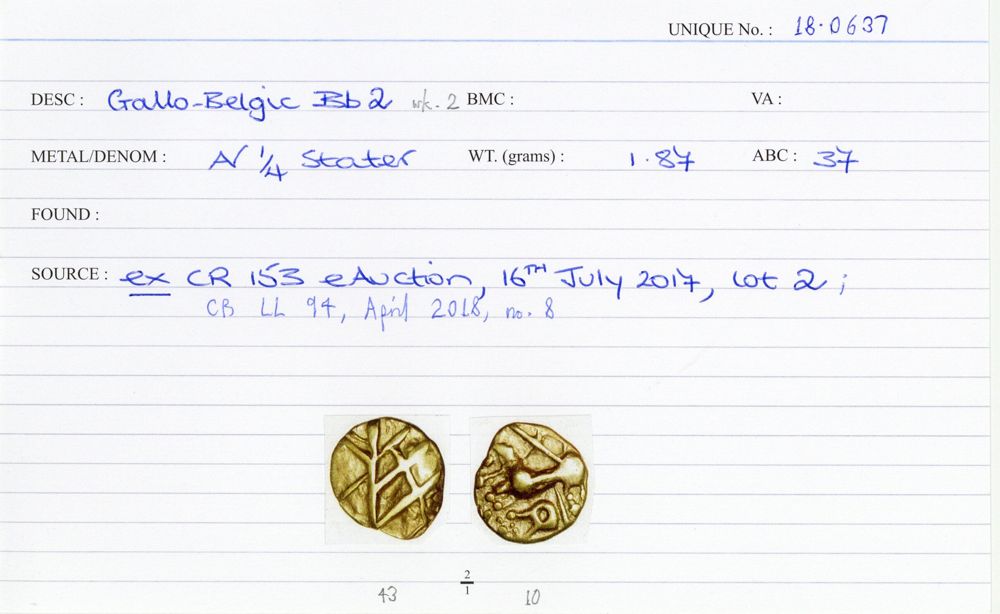 UNIQUE No. : 18·0637
DESC : Gallo-Belgic Bb2 wk. 2 BMC : VA :
METAL/DENOM : AV 1/4 Stater WT. (grams) : 1.87 ABC : 37
FOUND :
SOURCE : ex CR 153 eAuction, 16TH July 2017, lot 2 ;
CB LL 94, April 2018, no. 8
2/1
43 10